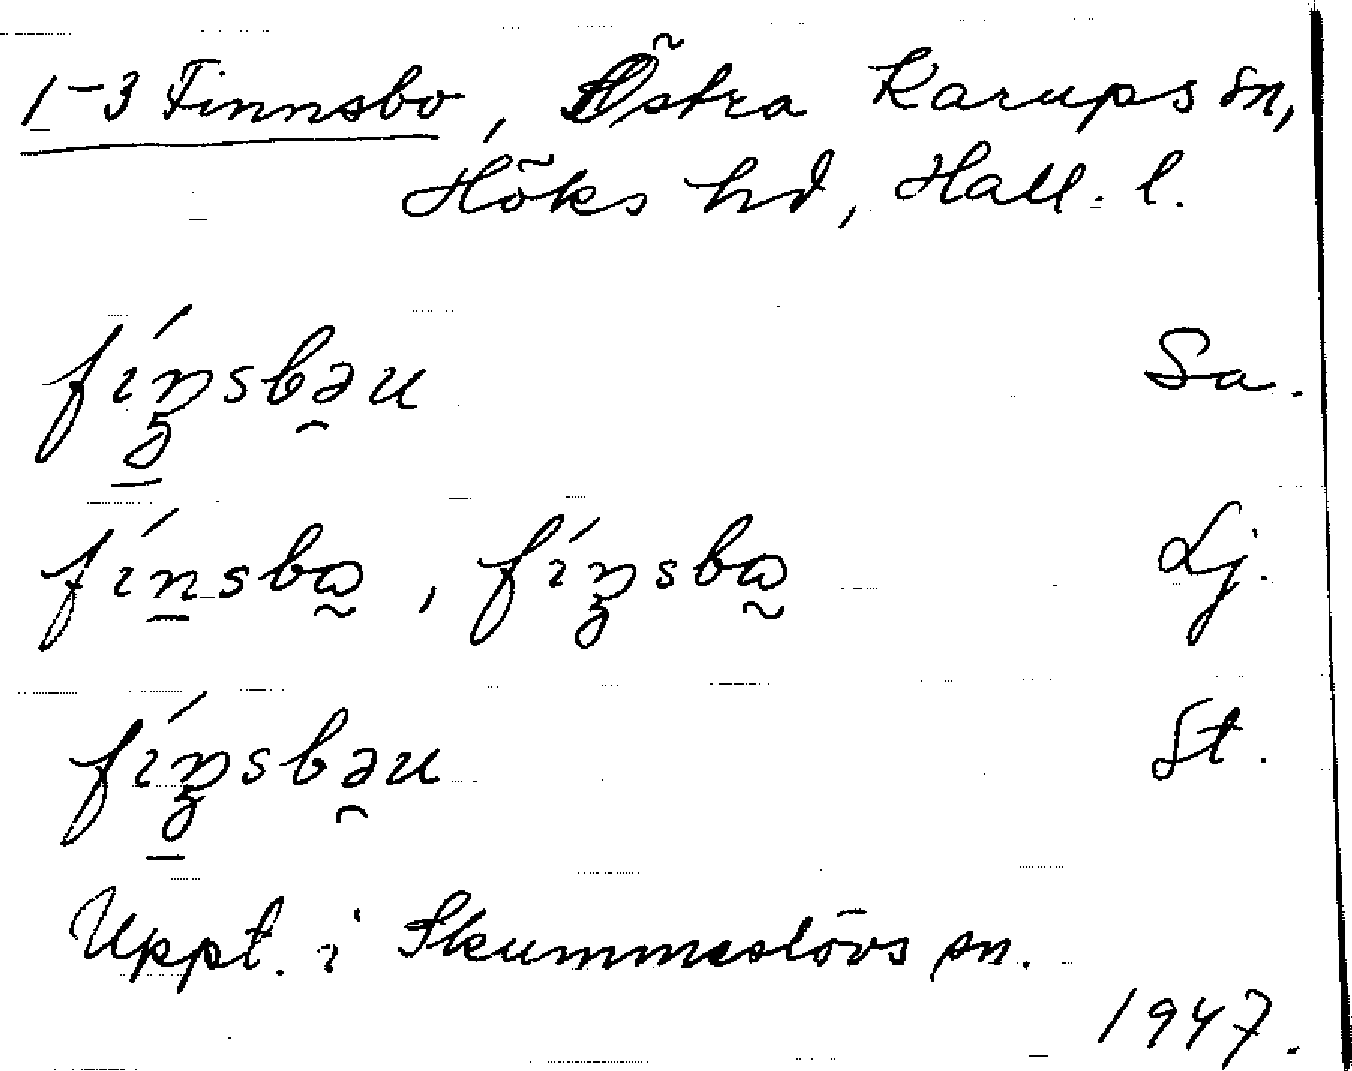 1-3 Finnsbo, Östra Karups sn,
Höks hd, Hall. l.
fín̥sbəu Sa.
fínsbɷ, fín̥sbɷ Lj.
fín̥sbəu St.
Uppt. i Skummeslövs sn.
1947.